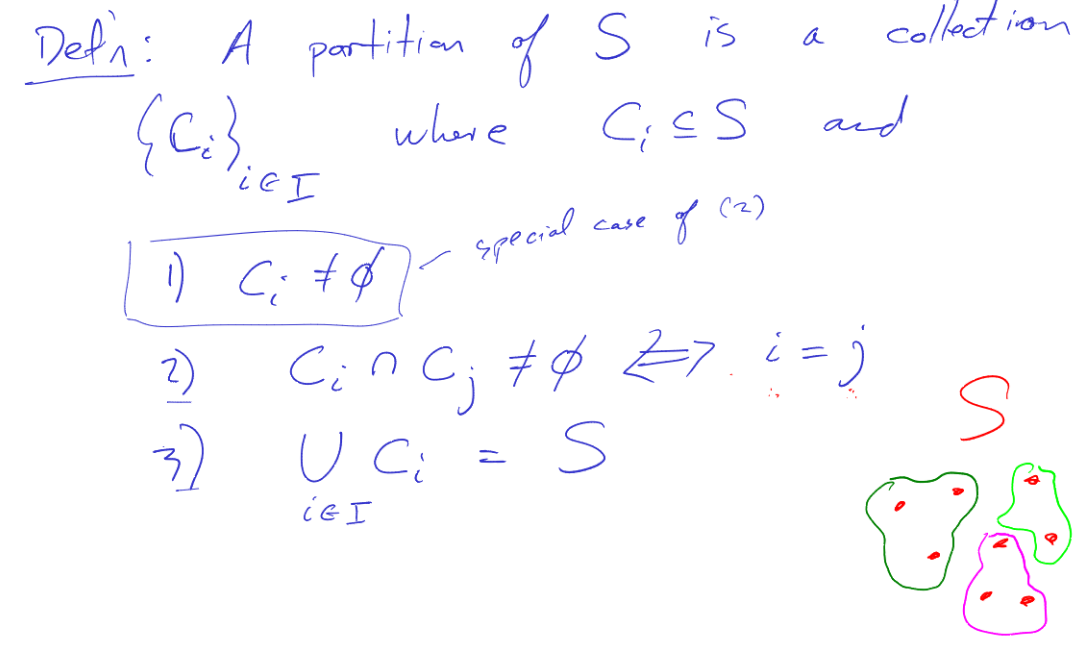 Def'n: A partition of S is a collection
{C_i}_{i∈I} where C_i ⊆ S and
1) C_i ≠ ∅ special case of (2)
2) C_i ∩ C_j ≠ ∅ ⟺ i = j
3) ∪_{i∈I} C_i = S
S